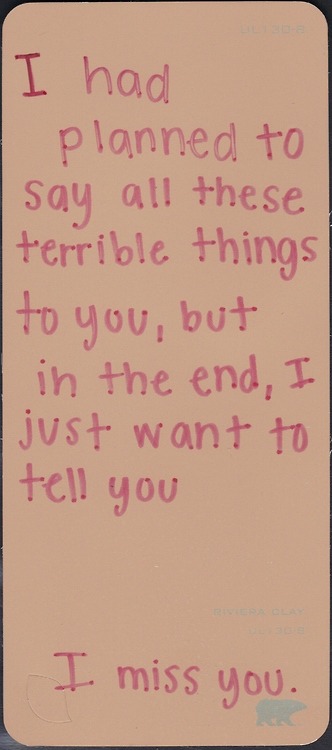 UL130-8
I had
planned to
say all these
terrible things
to you, but
in the end, I
just want to
tell you
RIVIERA CLAY
UL130-8
I miss you.